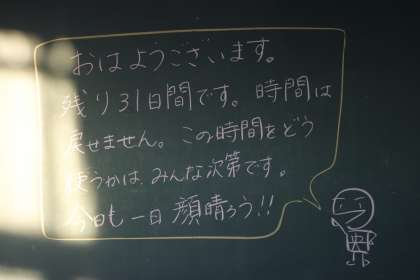 おはようございます。
残り31日間です。時間は
戻せません。この時間をどう
使うかは、みんな次第です。
今日も一日顔晴ろう!!